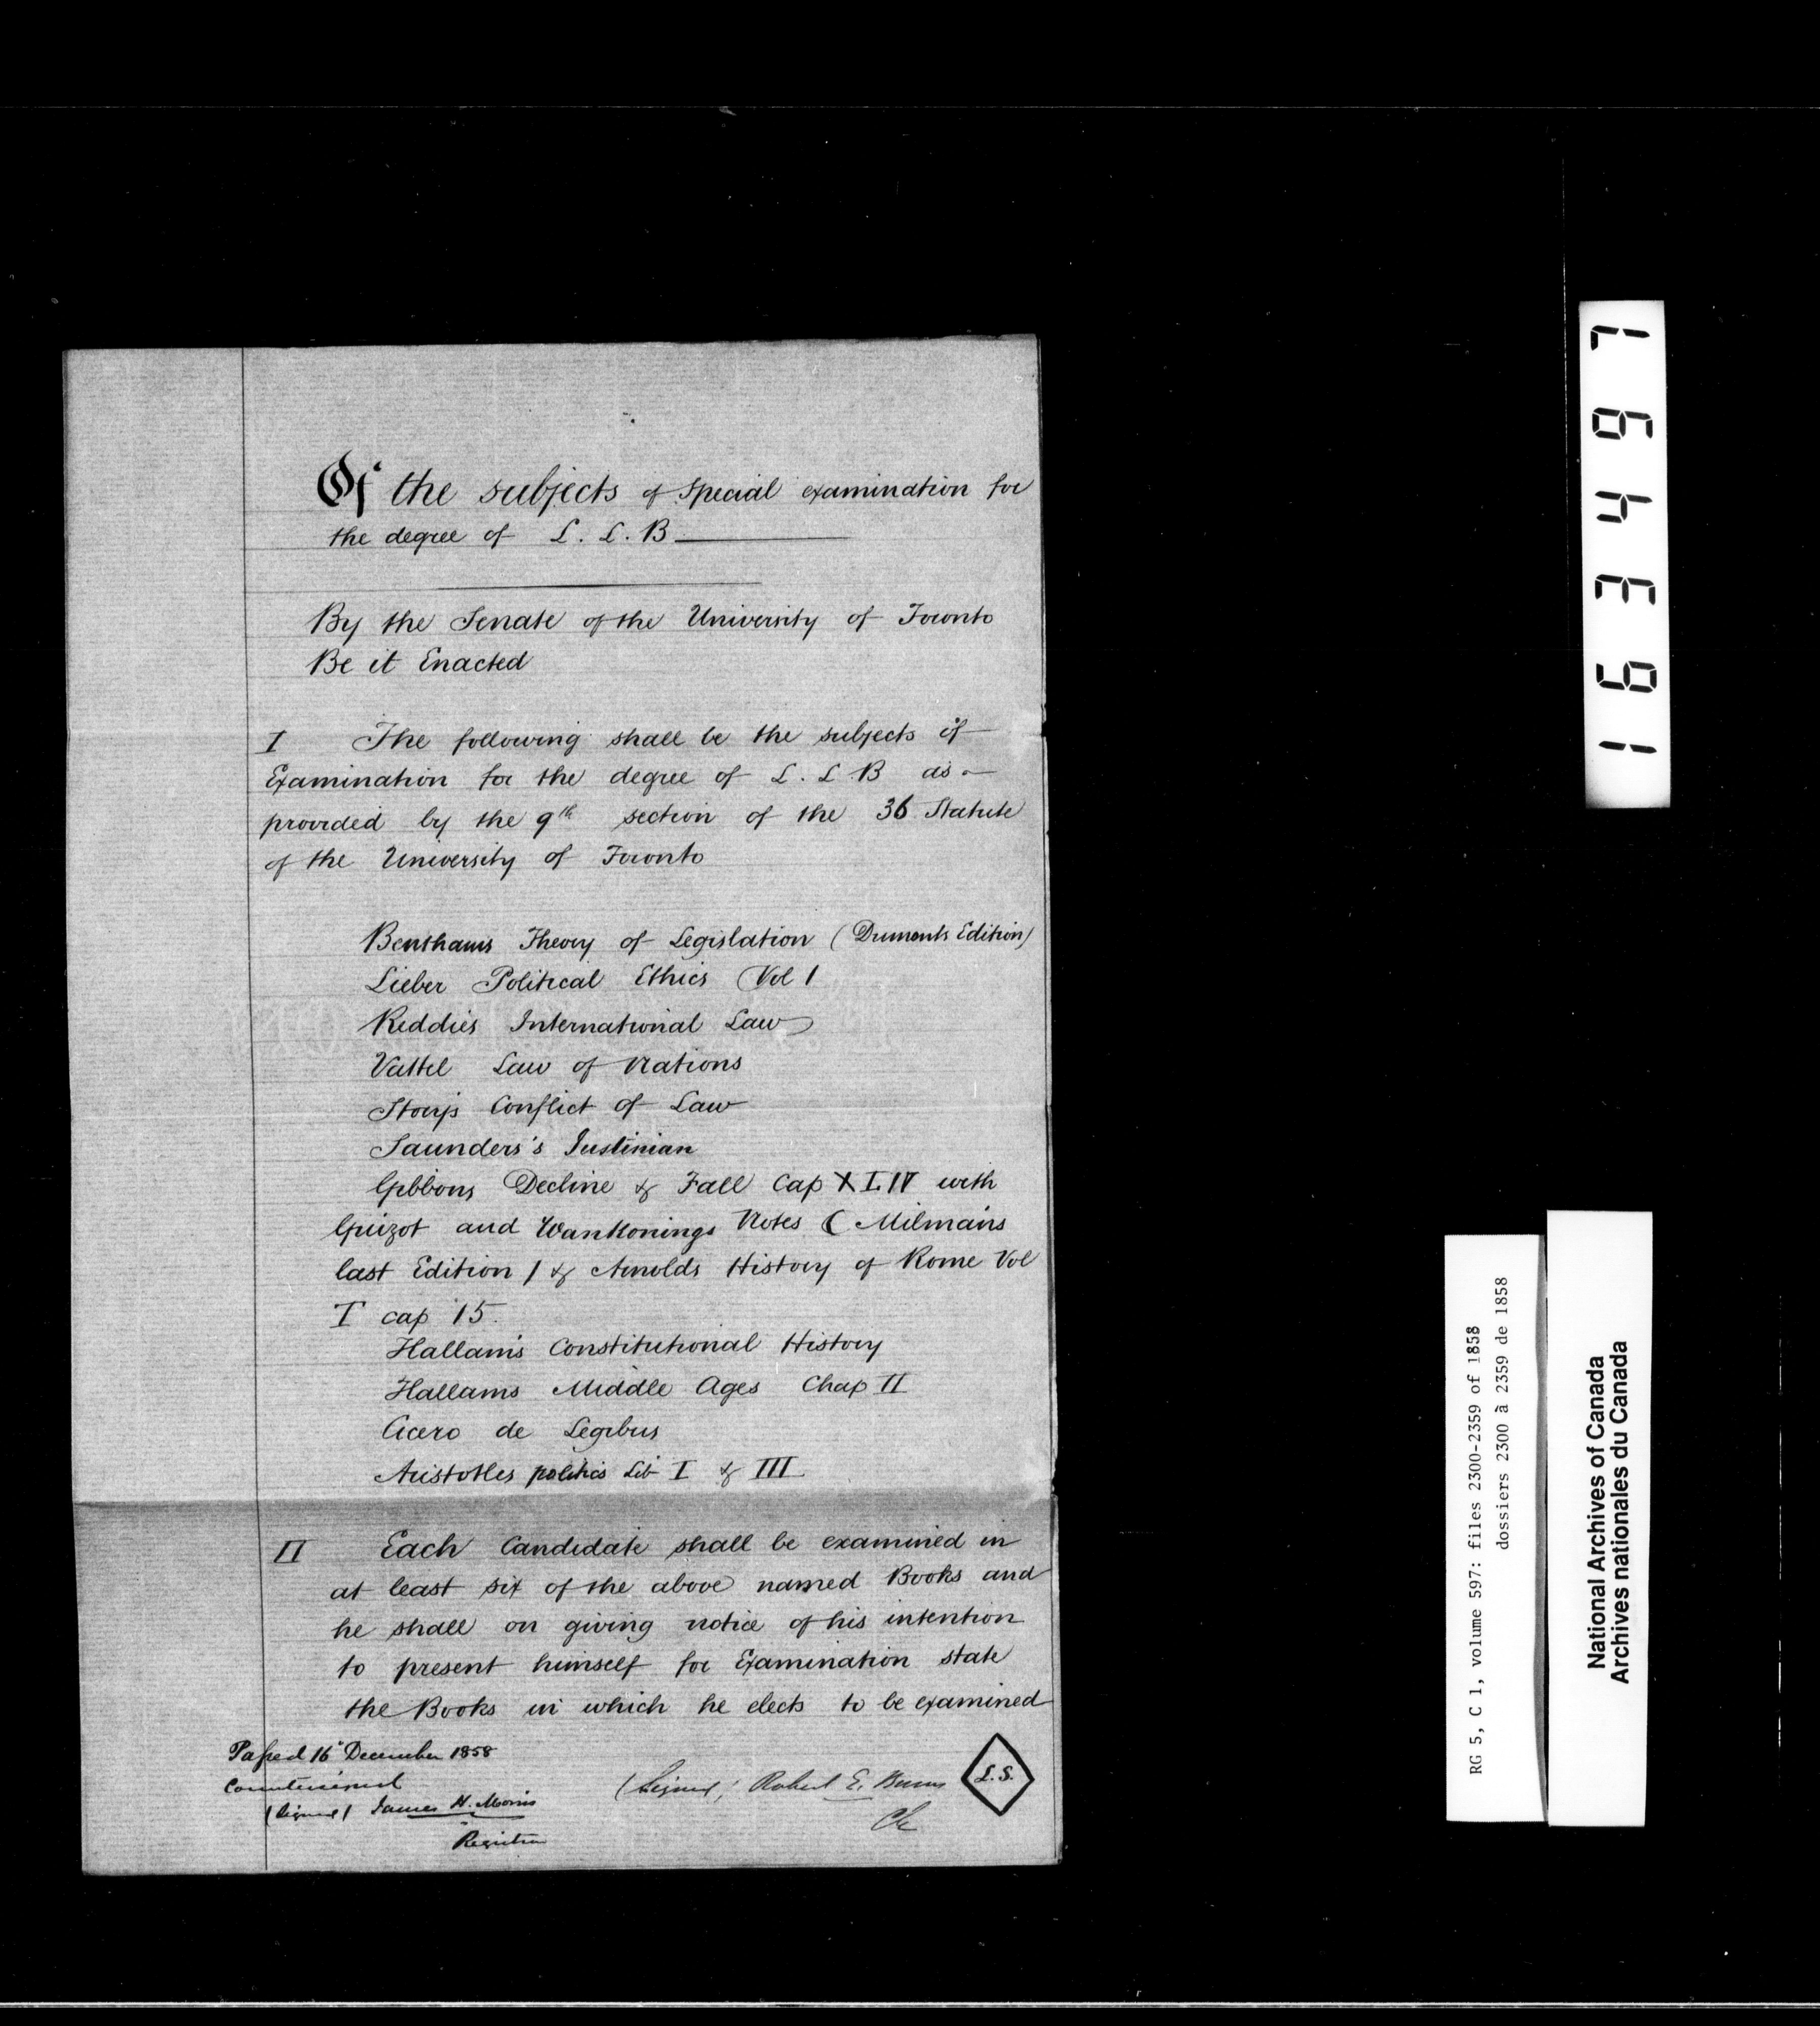 Of the subjects of special examination for
the degree of L. L. B
By the Senate of the University of Toronto
Be it Enacted
I The following shall be the subjects of
Examination for the degree of L. L. B as
provided by the 9th section of the 36 Statute
of the University of Toronto
Benthams Theory of Legislation (Dumonts Edition)
Lieber Political Ethics Vol 1
Reddies International Law
Vattel Law of Nations
Storys Conflict of Law
Saunders's Justinian
Gibbons Decline & Fall Cap XLIV with
Guizot and Wankonings Notes (Milmans
last Edition) & Arnolds History of Rome Vol
I cap 15.
Hallam's Constitutional History
Hallams Middle Ages Chap II
Cicero de Legibus
Aristotles politics Lib I & III
II Each Candidate shall be examined in
at least six of the above named Books and
he shall on giving notice of his intention
to present himself for Examination state
the Books in which he elects to be examined
Passed 16 December 1858
Countersigned
(Signed) James H. Morris
Registrar
(Signed) Robert E. Burns
L.S.
161
34497
RG 5, C 1, volume 597: files 2300-2359 of 1858
dossiers 2300 à 2359 de 1858
National Archives of Canada
Archives nationales du Canada